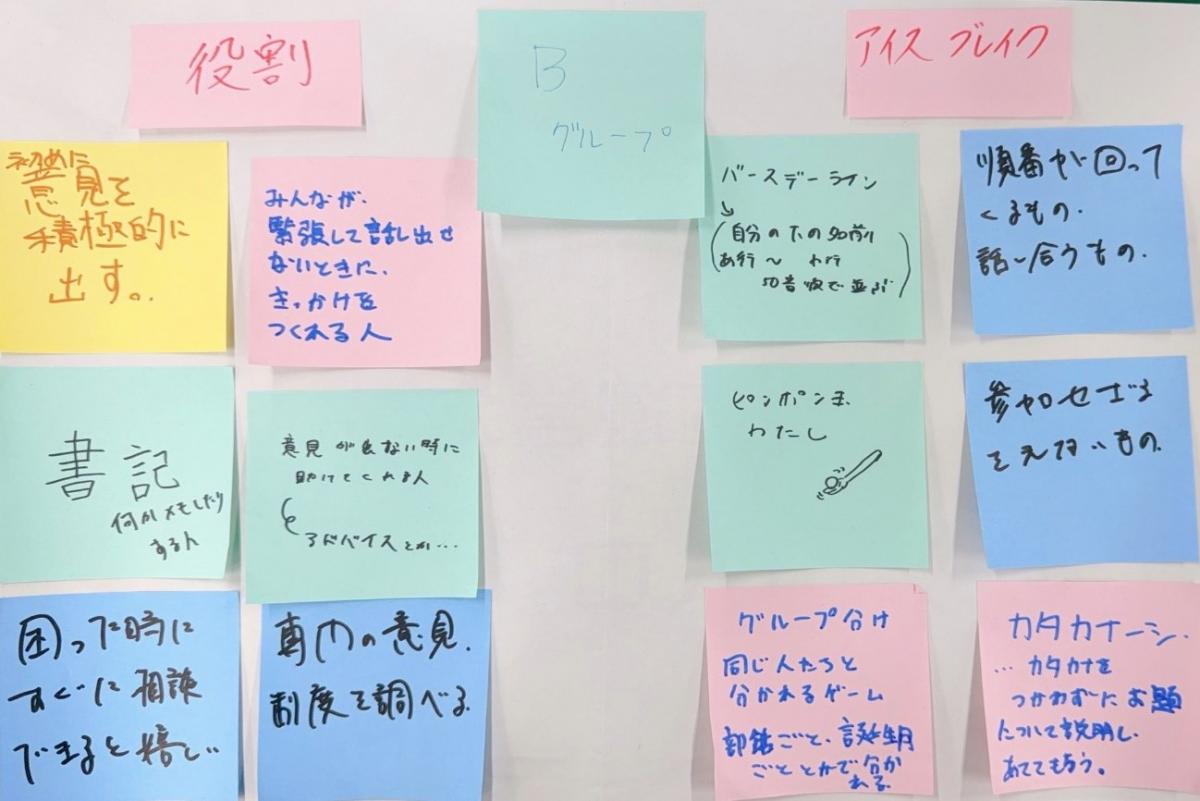 役割
B
グループ
アイスブレイク
初めに
意見を
積極的に
出す。
みんなが、
緊張して話し出せ
ないときに、
きっかけを
つくれる人
書記
何かメモしたり
する人
意見が出ない時に
助けてくれる人
アドバイスとか…
困った時に
すぐに相談
できると嬉しい
専門の意見、
制度を調べる
バースデーライン
↘
(自分の下の名前
あ行〜わ行
50音順で並ぶ)
順番が回って
くるもの。
話し合うもの。
ピンポン玉
わたし
参加せざる
をえないもの。
グループ分け
同じ人たちと
分かれるゲーム
部活ごと、誕生月
ごととかで分か
れる
カタカナーシ
…カタカナを
つかわずにお題
について説明し、
あててもらう。